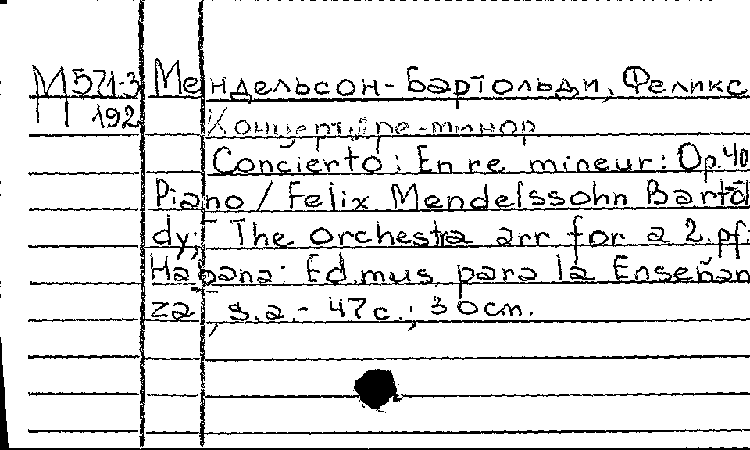 М571-3 Мендельсон-Бартольди, Феликс
П 192 Концерт, ре-минор
Concierto: En re mineur: Op. 40
Piano / Felix Mendelssohn Bartol
dy; The orchestra arr for a 2. pf.-
Habana: Ed. mus. para la Enseñan
za, s.a.- 47 c.; 30cm.